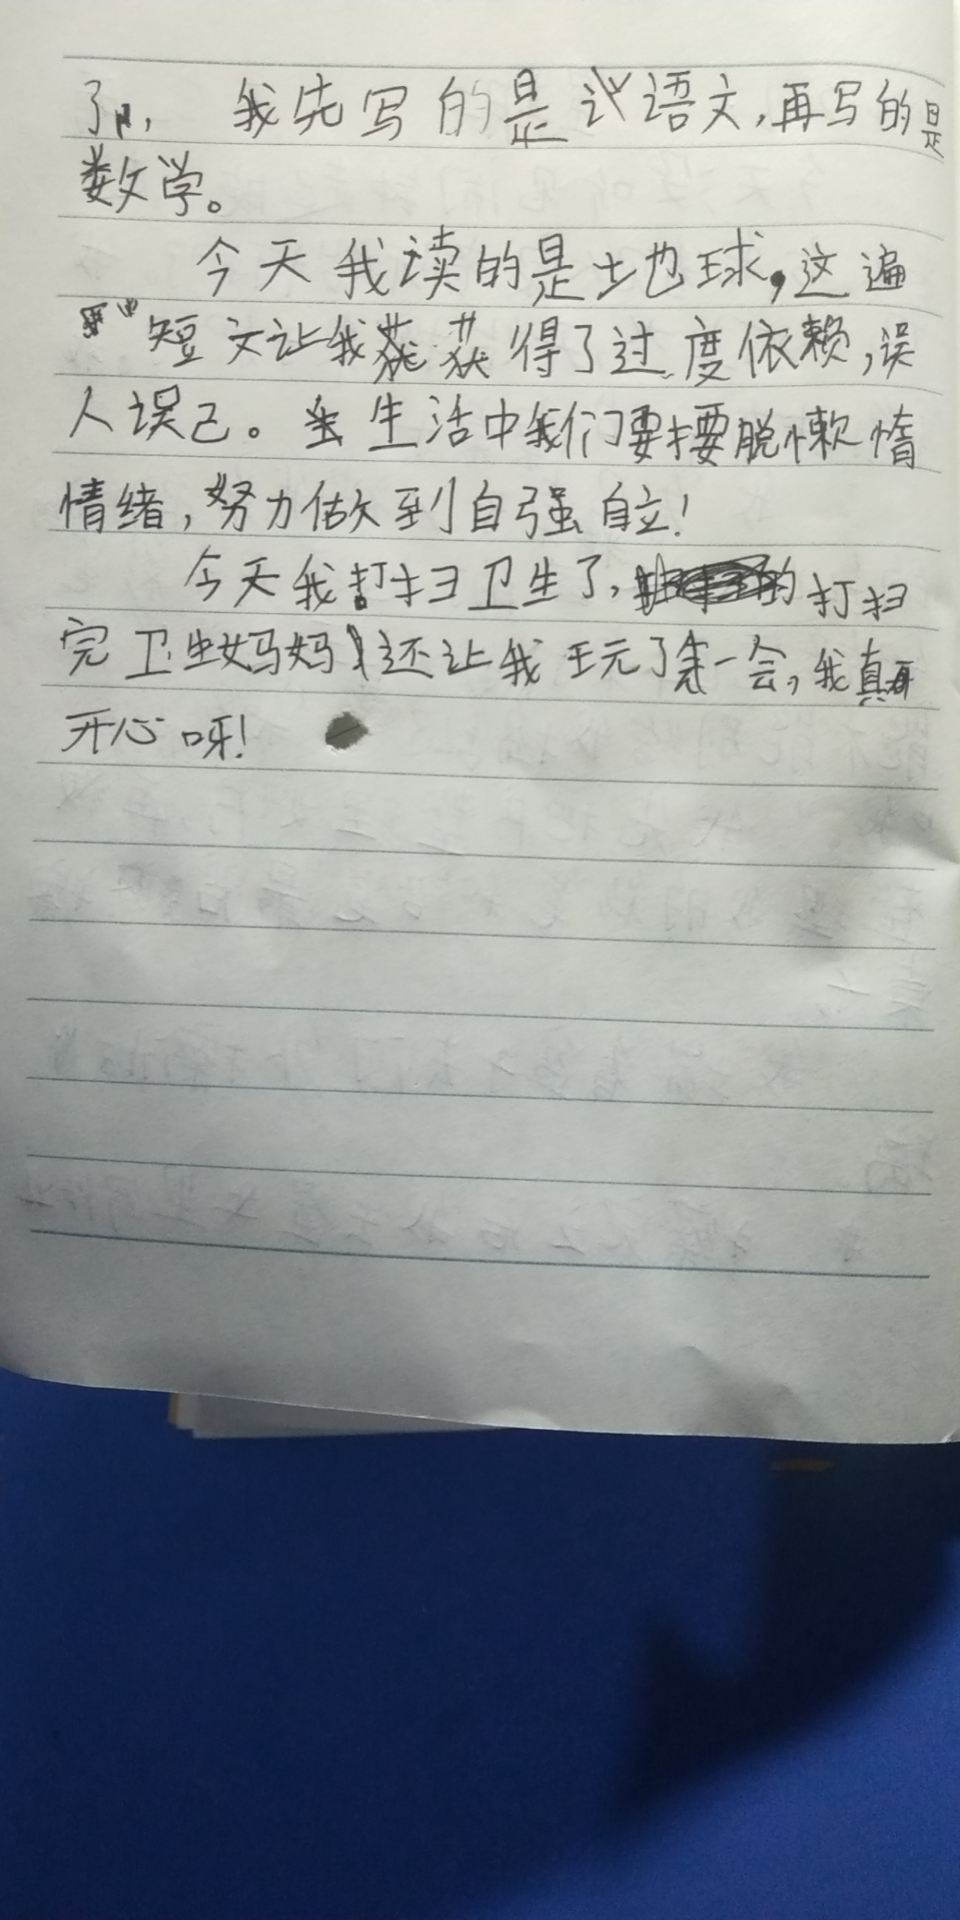 了，我先写的是语文，再写的是
数学。
今天我读的是土也球，这遍
短文让我获得了过度依赖，误
人误己。生活中我们要摆脱懒惰
情绪，努力做到自强自立！
今天我打扫卫生了，的打扫
完卫生妈妈还让我玩了一会，我真
开心呀！